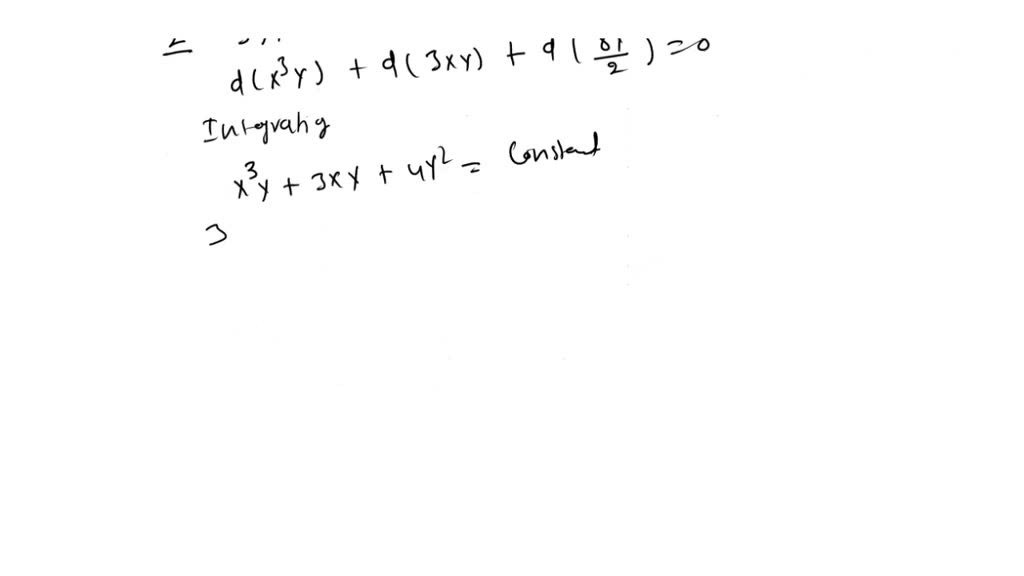 d(x³y) + d(3xy) + d( /2 ) = 0
Integrating
x³y + 3xy + 4y² = Constant
3